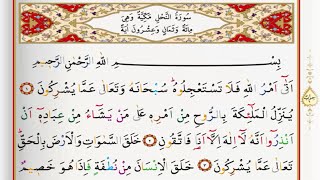 سُورَةُ النَّحْلِ مَكِّيَّةٌ وَهِيَ
مِائَةٌ وَثَمَانٍ وَعِشْرُونَ آيَةً
بِسْمِ اللّٰهِ الرَّحْمٰنِ الرَّحِيمِ
اَتٰٓى اَمْرُ اللّٰهِ فَلَا تَسْتَعْجِلُوهُ سُبْحَانَهُ وَتَعَالٰى عَمَّا يُشْرِكُونَ ١
يُنَزِّلُ الْمَلٰٓئِكَةَ بِالرُّوحِ مِنْ اَمْرِهٖ عَلٰى مَنْ يَشَٓاءُ مِنْ عِبَادِهٖٓ اَنْ
اَنْذِرُٓوا اَنَّهُ لَٓا اِلٰهَ اِلَّٓا اَنَا۬ فَاتَّقُونِ ٢ خَلَقَ السَّمٰوَاتِ وَالْاَرْضَ بِالْحَقِّ
تَعَالٰى عَمَّا يُشْرِكُونَ ٣ خَلَقَ الْاِنْسَانَ مِنْ نُطْفَةٍ فَاِذَا هُوَ خَصِيمٌ